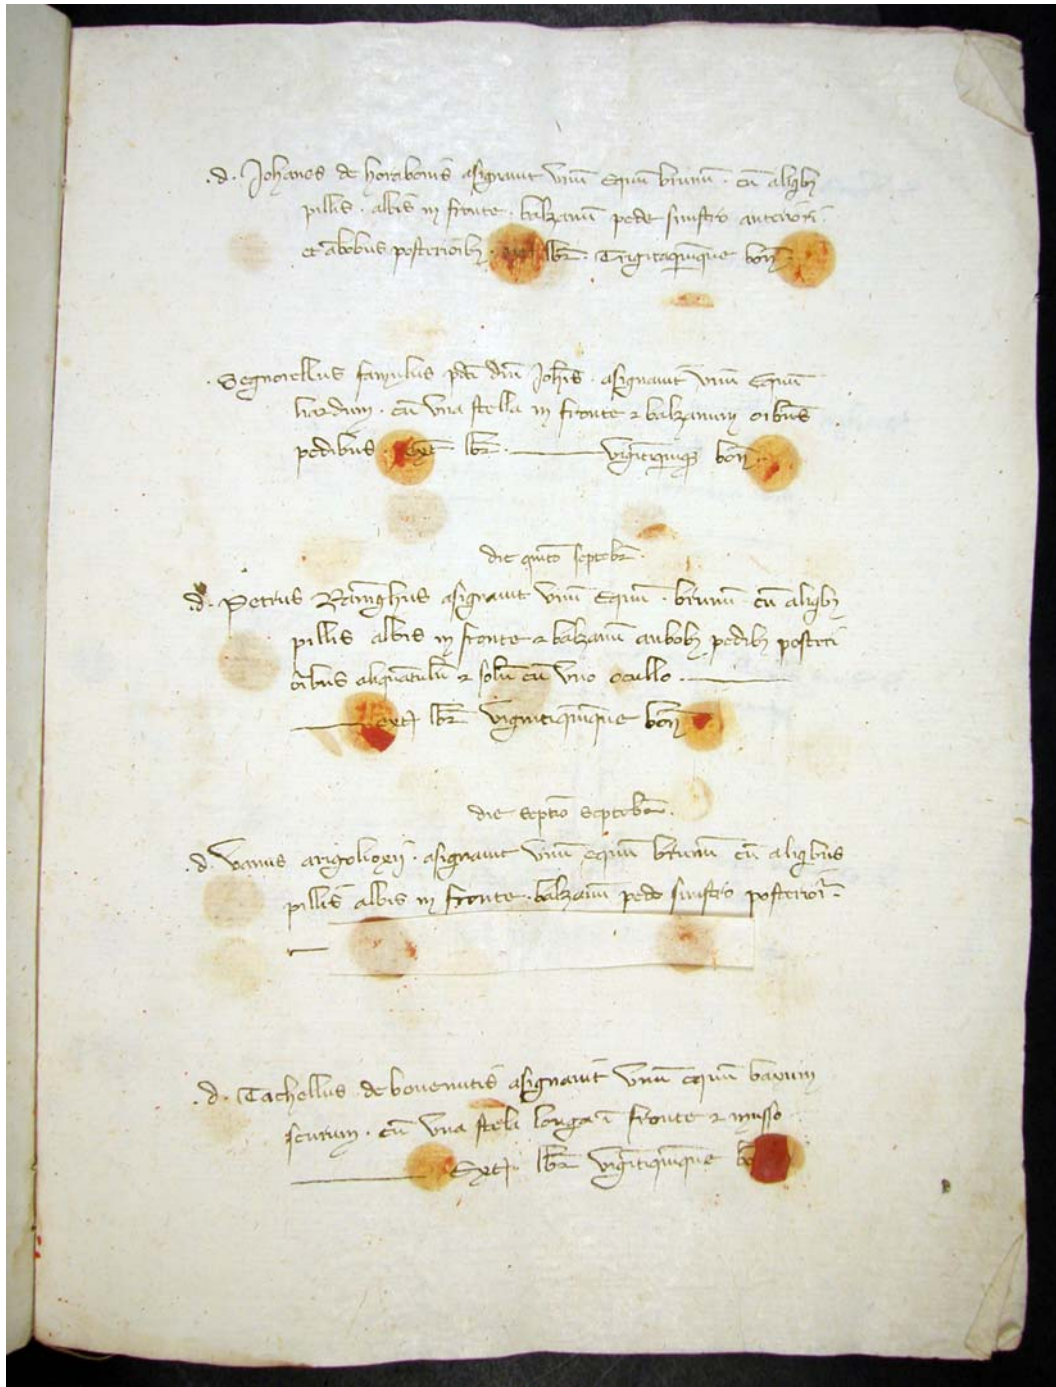 .d. Johanes de horabonis asignavit unum equm brunum. cum aliqbus
pillis. albis in fronte. balzanum pede sinistro anteriori.
et ambobus posterioribus. lbr. Trigitaquinque bon.
. Segnorellus famulus pcti dni Johis. asignavit unum equm
liardum. cum una stella in fronte et balzanum oibus
pedibus ext lbr. vigitiquinque bon.
die quinto septebr.
.d. Petrus asignavit unum equm. brunum cum aliqbus
pillis albis in fronte et balzanum anbobus pedibus posteri
oribus aliquatulum et solum cum uno ocullo.
ext. lbr vigintiquinque bon
die septimo septebr.
.d. vanus asignavit unum equm brunum cum aliqibus
pillis albis in fronte. balzanum pede sinistro posteriori.
.d. Tachellus de bonenutis asignavit unum equm baium
scurum. cum una stela longa in fronte et musso
Ext. lbr vigitiquinque